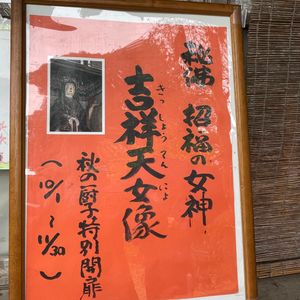 秘佛 招福の女神
吉祥天女像
きっしょうてんにょ
秋の厨子特別開扉
(10/1~11/30)